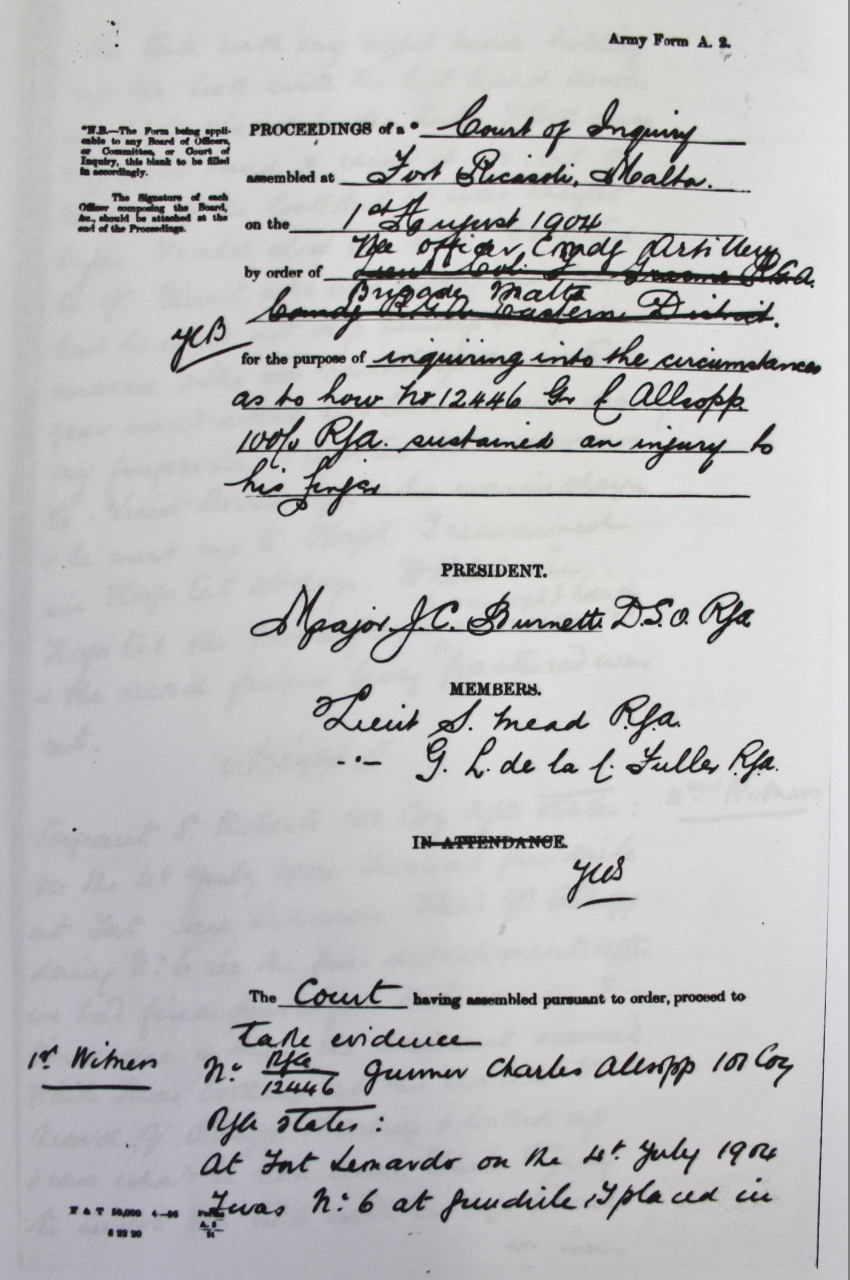 Army Form A. 2.
*N.B.—The Form being appli-
cable to any Board of Officers,
or Committee, or Court of
Inquiry, this blank to be filled
in accordingly.
The Signature of each
Officer composing the Board,
&c., should be attached at the
end of the Proceedings.
PROCEEDINGS of a * Court of Inquiry
assembled at Fort Ricasoli, Malta.
on the 1st August 1904
The officer Comdg Artillery
by order of Lieut Col. R.G.A.
Brigade Malta
Comdg R.G.A. Eastern District.
for the purpose of inquiring into the circumstances
as to how No 12446 Gr C Allsopp
R.G.A. sustained an injury to
his finger
PRESIDENT.
Major J.C. Burnett D.S.O. RGA
MEMBERS.
Lieut S. Mead R.G.A.
-"- G. L. de la C. Fuller R.G.A.
IN ATTENDANCE.
The Court having assembled pursuant to order, proceed to
take evidence
1st Witness
No RGA
12446 Gunner Charles Allsopp Coy
RGA states:
At Fort Leonardo on the 4th July 1904
I was No 6 at gundrill, I placed in
6 22 20
Forms
A. 2